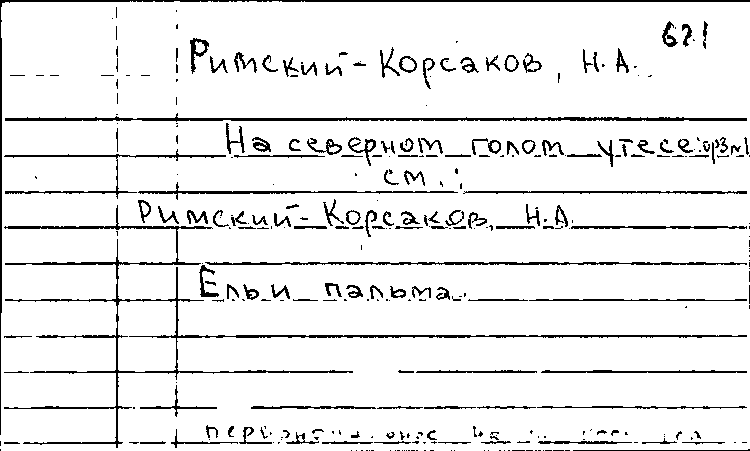 671
Римский-Корсаков, Н.А.
На северном голом утесе: op3 №1
см.:
Римский-Корсаков, Н.А
Ель и пальма.